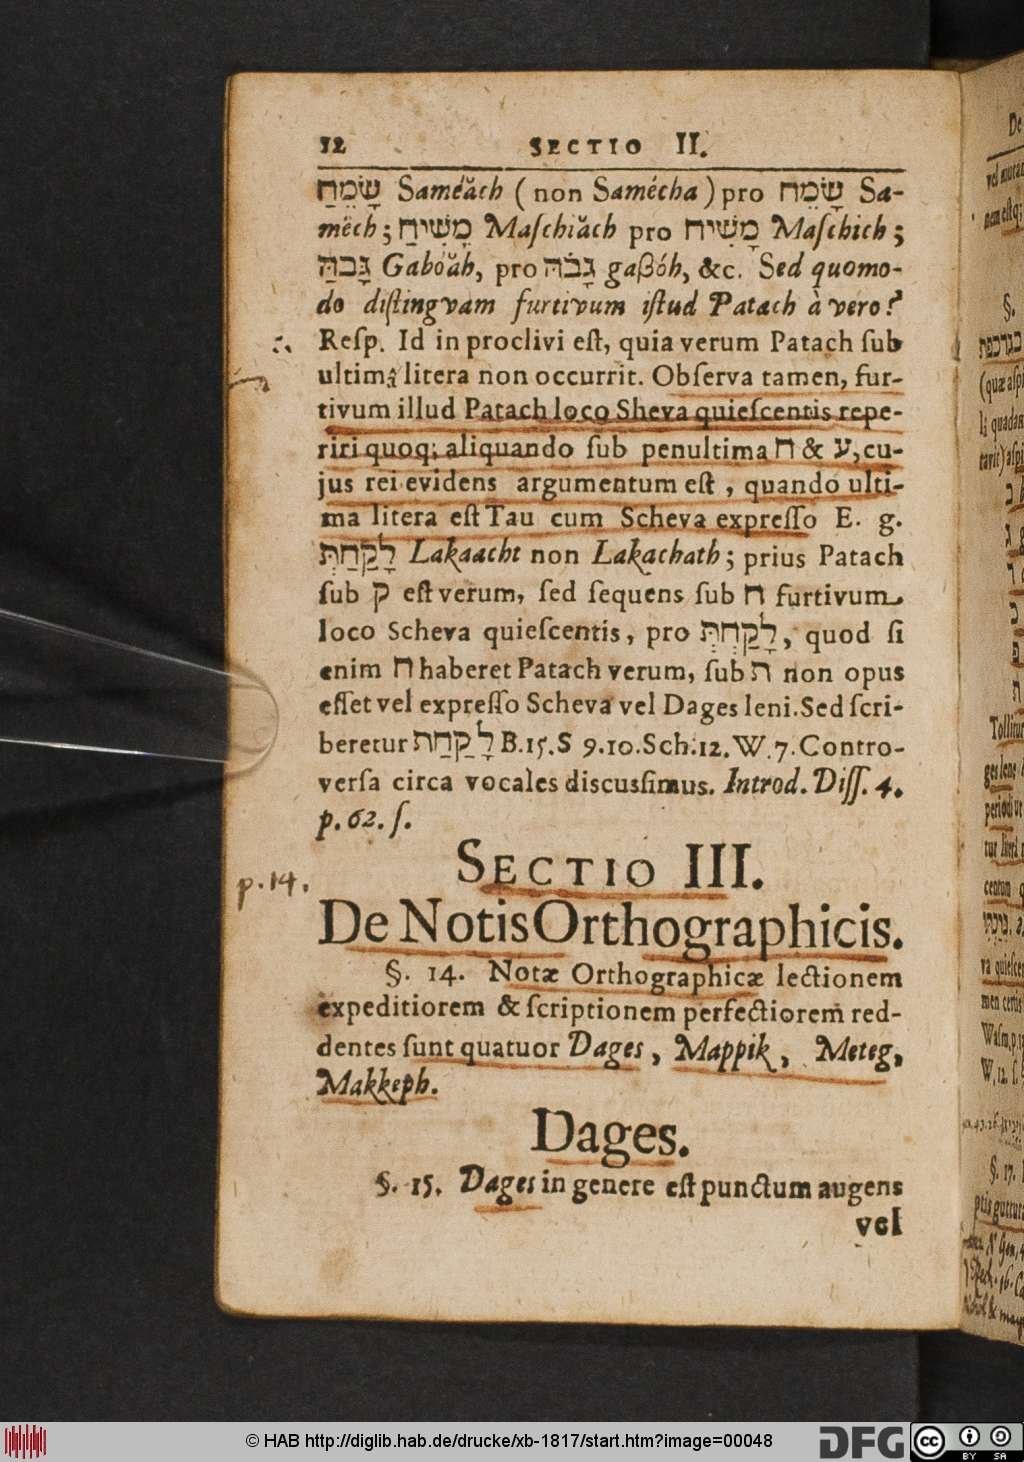 12 SECTIO II.
שָׂמֵחַ Saméăch (non Samécha) pro שָׂמֵח Sa-
mêch; מָשִׁיחַ Maſchiăch pro מָשִׁיח Maſchich;
גָּבֹהַּ Gaboăh, pro גָּבֹהּ gaßóh, &c. Sed quomo-
do diſtingvam furtivum iſtud Patach à vero?
Reſp. Id in proclivi eſt, quia verum Patach ſub
ultimâ litera non occurrit. Obſerva tamen, fur-
tivum illud Patach loco Sheva quieſcentis repe-
riri quoq; aliquando ſub penultima ח & ע, cu-
jus rei evidens argumentum eſt, quando ulti-
ma litera eſt Tau cum Scheva expreſſo E. g.
לָקַחַתְּ Lakaacht non Lakachath; prius Patach
ſub ק eſt verum, ſed ſequens ſub ח furtivum
loco Scheva quieſcentis, pro לָקַחְתְּ, quod ſi
enim ח haberet Patach verum, ſub ת non opus
eſſet vel expreſſo Scheva vel Dages leni. Sed ſcri-
beretur לָקַחַת B.15.S 9.10.Sch.12.W.7.Contro-
verſa circa vocales discuſſimus. Introd. Diſſ. 4.
p. 62. ſ.
SECTIO III.
p. 14.
De Notis Orthographicis.
§. 14. Notæ Orthographicæ lectionem
expeditiorem & ſcriptionem perfectiorem red-
dentes ſunt quatuor Dages, Mappik, Meteg,
Makkeph.
Dages.
§. 15. Dages in genere eſt punctum augens
vel
© HAB http://diglib.hab.de/drucke/xb-1817/start.htm?image=00048
DFG
cc BY SA